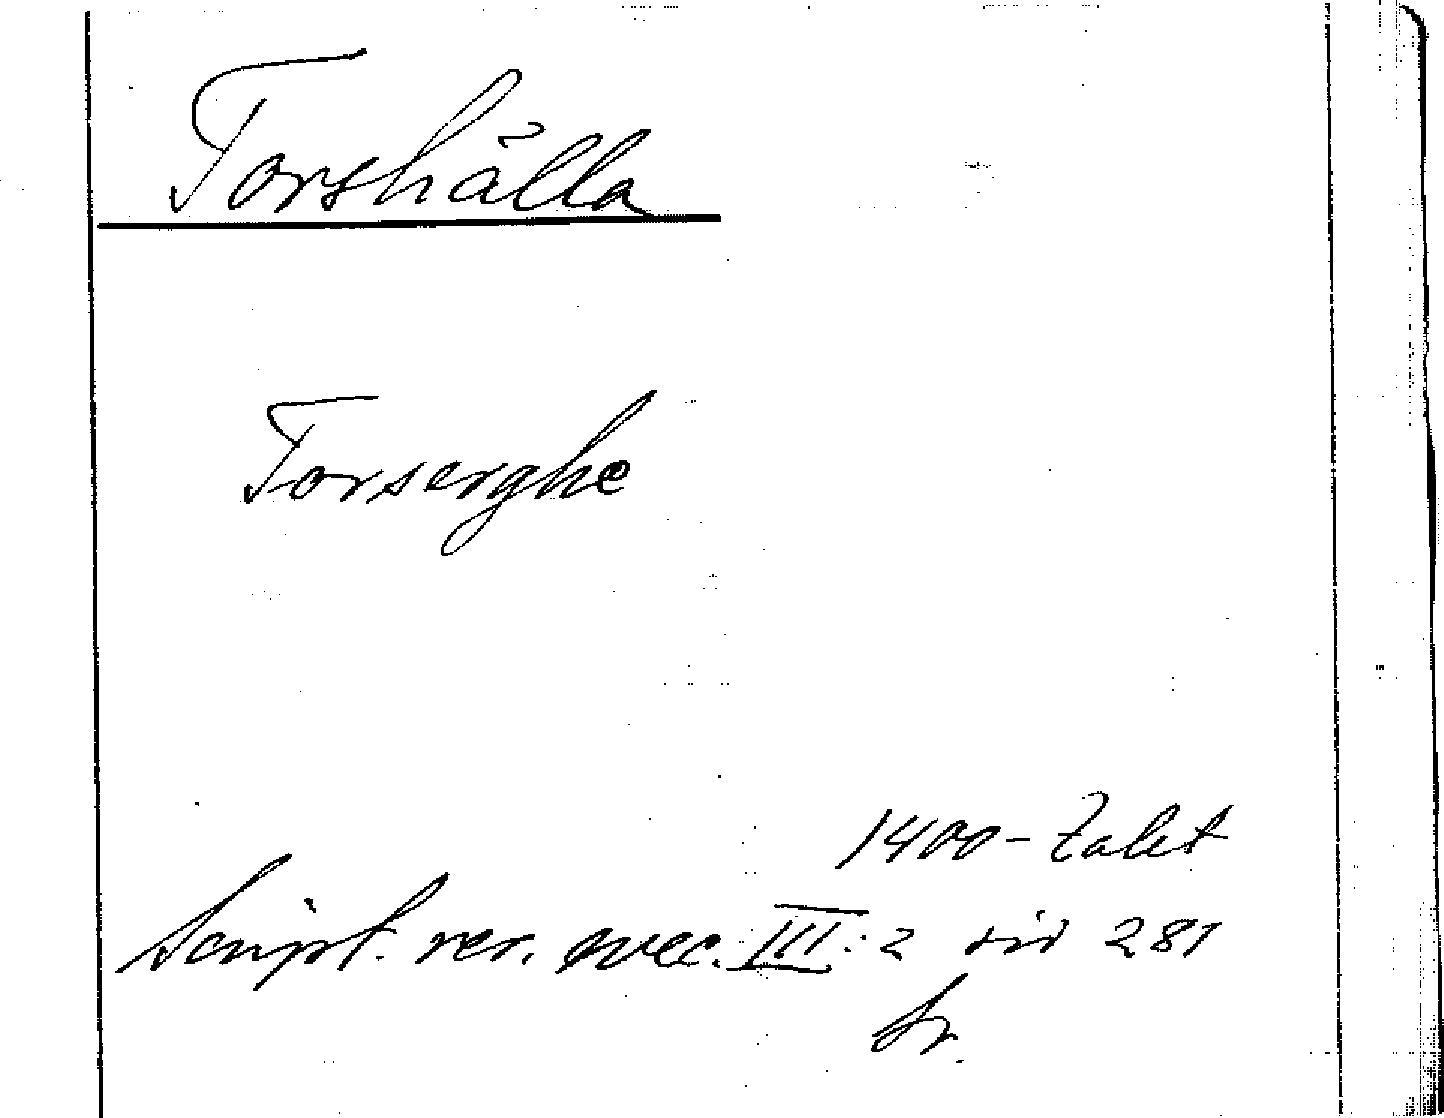 Torshälla
Torserghe
1400-talet
Script. rer. svec. III:2 sid 281
Sr.